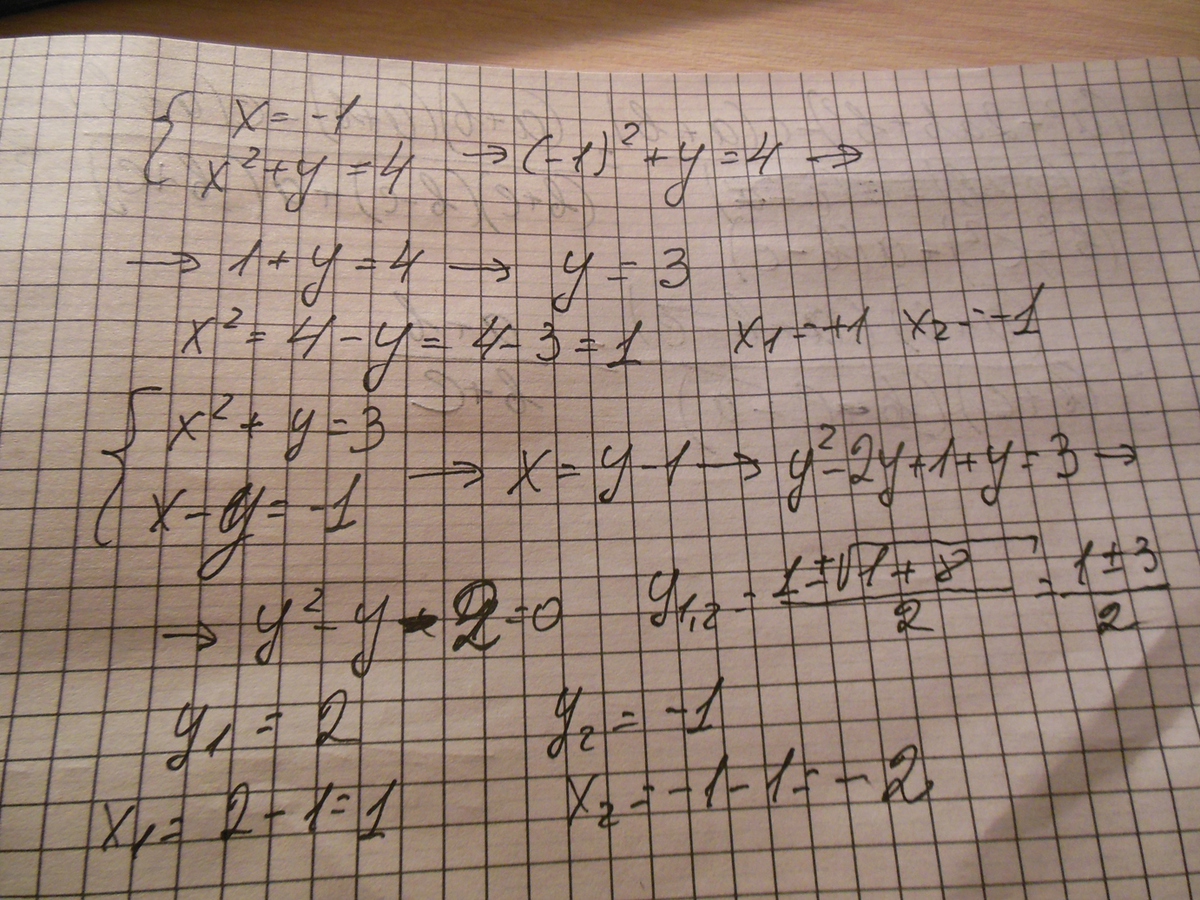 { x = -1
x² + y = 4 → (-1)² + y = 4 →
→ 1 + y = 4 → y = 3
x² = 4 - y = 4 - 3 = 1 x₁ = +1 x₂ = -1
{ x² + y = 3
x - y = -1 → x = y - 1 → y² - 2y + 1 + y = 3 →
→ y² - y - 2 = 0 y₁,₂ = (1 ± √(1 + 8))/2 = (1 ± 3)/2
y₁ = 2 y₂ = -1
x₁ = 2 - 1 = 1 x₂ = -1 - 1 = -2